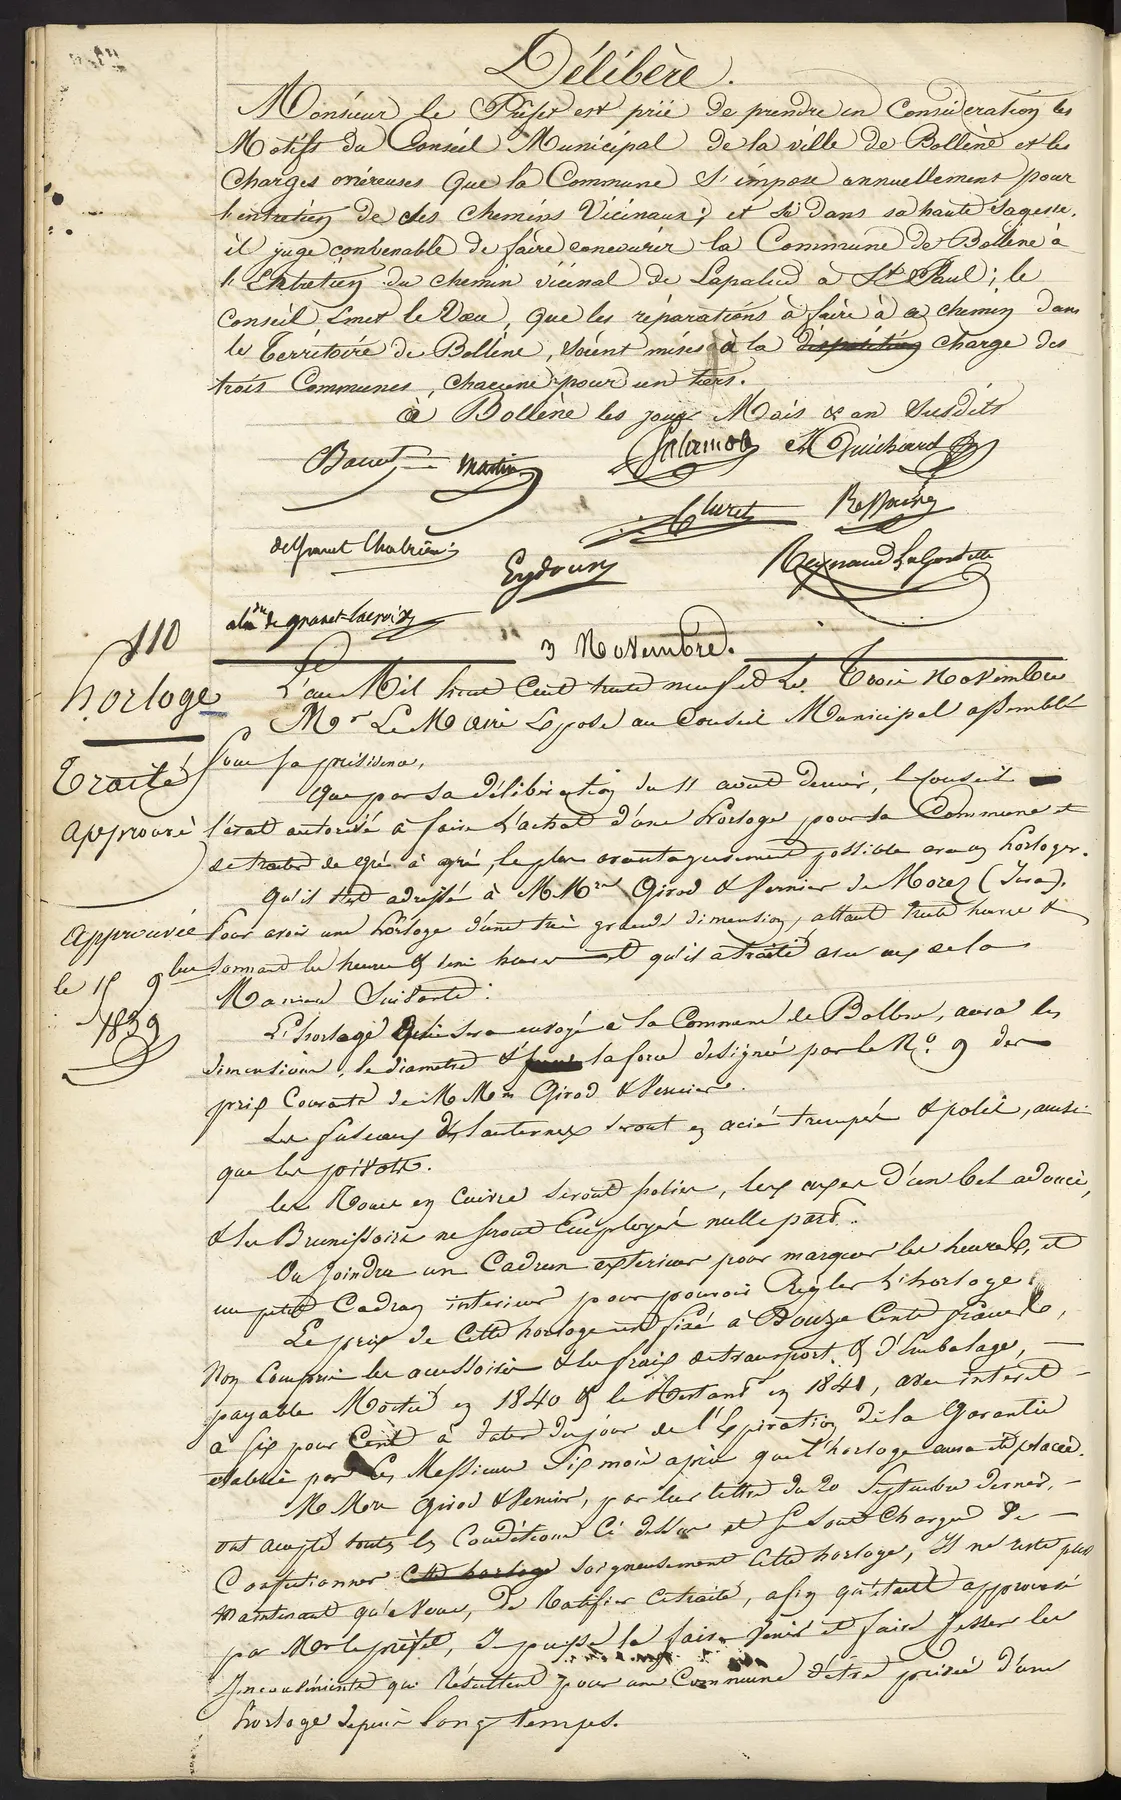 Délibère.
Monsieur le Préfet est prié de prendre en Considération les
Motifs du Conseil Municipal de la ville de Bollène et les
Charges onéreuses que la Commune s'impose annuellement pour
l'entretien de ses chemins Vicinaux; et si dans sa haute Sagesse,
il juge convenable de faire concourir la Commune de Bollène à
l'Entretien du chemin vicinal de Lapalud à St Paul; le
Conseil émet le Vœu, que les réparations à faire à ce chemin dans
le Territoire de Bollène, soient mises à la disposition charge des
trois Communes, chacune pour un tiers.
à Bollène les jour Mois & an susdits
Bonnet Martin Guichard
Cluret
de Granet Chabrière
Eydoux Reynaud Lagardette
de granet-Lacroix
110
3 Novembre.
horloge
L'an Mil huit Cent trente neuf et le Trois Novembre
Mr Le Maire Expose au Conseil Municipal assemblé
Sous sa présidence,
Traité
approuvé
Que par sa délibération du 11 août dernier, le Conseil
l'avait autorisé à faire l'achat d'une horloge pour la Commune et
de traiter de gré à gré, le plus avantageusement possible avec un horloger.
qu'il s'est adressé à MMrs Girod & Vernier de Morez (Jura),
approuvée
le 15 9bre
1839
Pour avoir une horloge d'une très grande dimension, allant trente heures &
sonnant les heures & demi heures et qu'il a traité avec eux de la
Manière Suivante:
L'horloge qui sera envoyé à la Commune de Bollène, aura les
dimensions, le diamètre & la force désignés par le No. 9 des
prix Courants de MMrs Girod & Vernier.
Les fuseaux des lanternes seront en acier trempé & polis, ainsi
que les pivots.
les Roues en Cuivre seront polies, les axes d'un bel adouci,
& les Brunissoirs ne seront Employés nulle part.
On Joindra un Cadran extérieur pour marquer les heures, et
un petit Cadran intérieur pour pouvoir Régler L'horloge.
Le prix de Cette horloge est fixé à Douze Cents francs,
Non Compris les accessoires & les frais de transport & d'Embalage,
payable Moitié en 1840 & le Restant en 1841, avec intérêt
à Six pour Cent à dater du jour de l'Expiration de la Garantie
établie par Ces Messieurs Six mois après que l'horloge aura été placée.
MMrs Girod & Vernier, par leur lettre du 20 Septembre dernier,
ont accepté toutes les Conditions Ci dessus et se sont Chargés de
Confectionner cette horloge soigneusement Cette horloge, Il ne reste plus
maintenant qu'à Vous, De Ratifier ce traité, afin qu'étant approuvé
par Mr le préfet, Je puisse la faire Venir et faire Cesser les
Inconvénients qui Résultent pour une Commune d'être privée d'une
horloge depuis long temps.